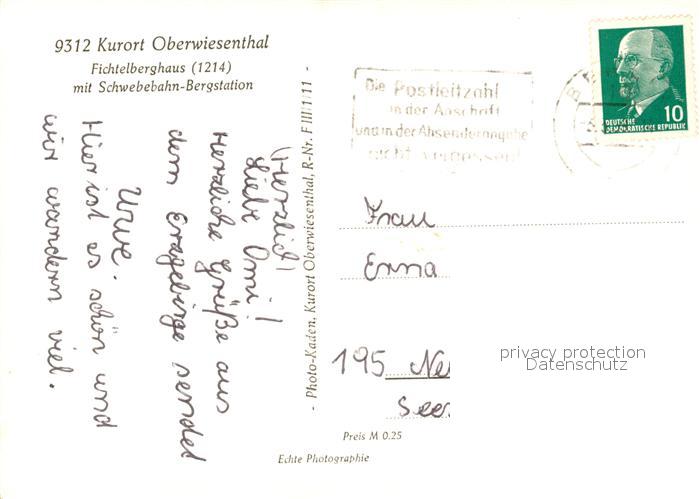 9312 Kurort Oberwiesenthal
Fichtelberghaus (1214)
mit Schwebebahn-Bergstation
(Herzlich!
Liebe Omi!
Herzliche Grüße aus
dem Erzgebirge sendet
Uwe.
Hier ist es schön und
wir wandern viel.
- Photo-Kaden, Kurort Oberwiesenthal, R-Nr. F III/1/11 -
Die Postleitzahl
in der Anschrift
und in der Absenderangabe
nicht vergessen!
10
DEUTSCHE
DEMOKRATISCHE REPUBLIK
Frau
Erma
195 Ne
See
privacy protection
Datenschutz
Preis M 0.25
Echte Photographie